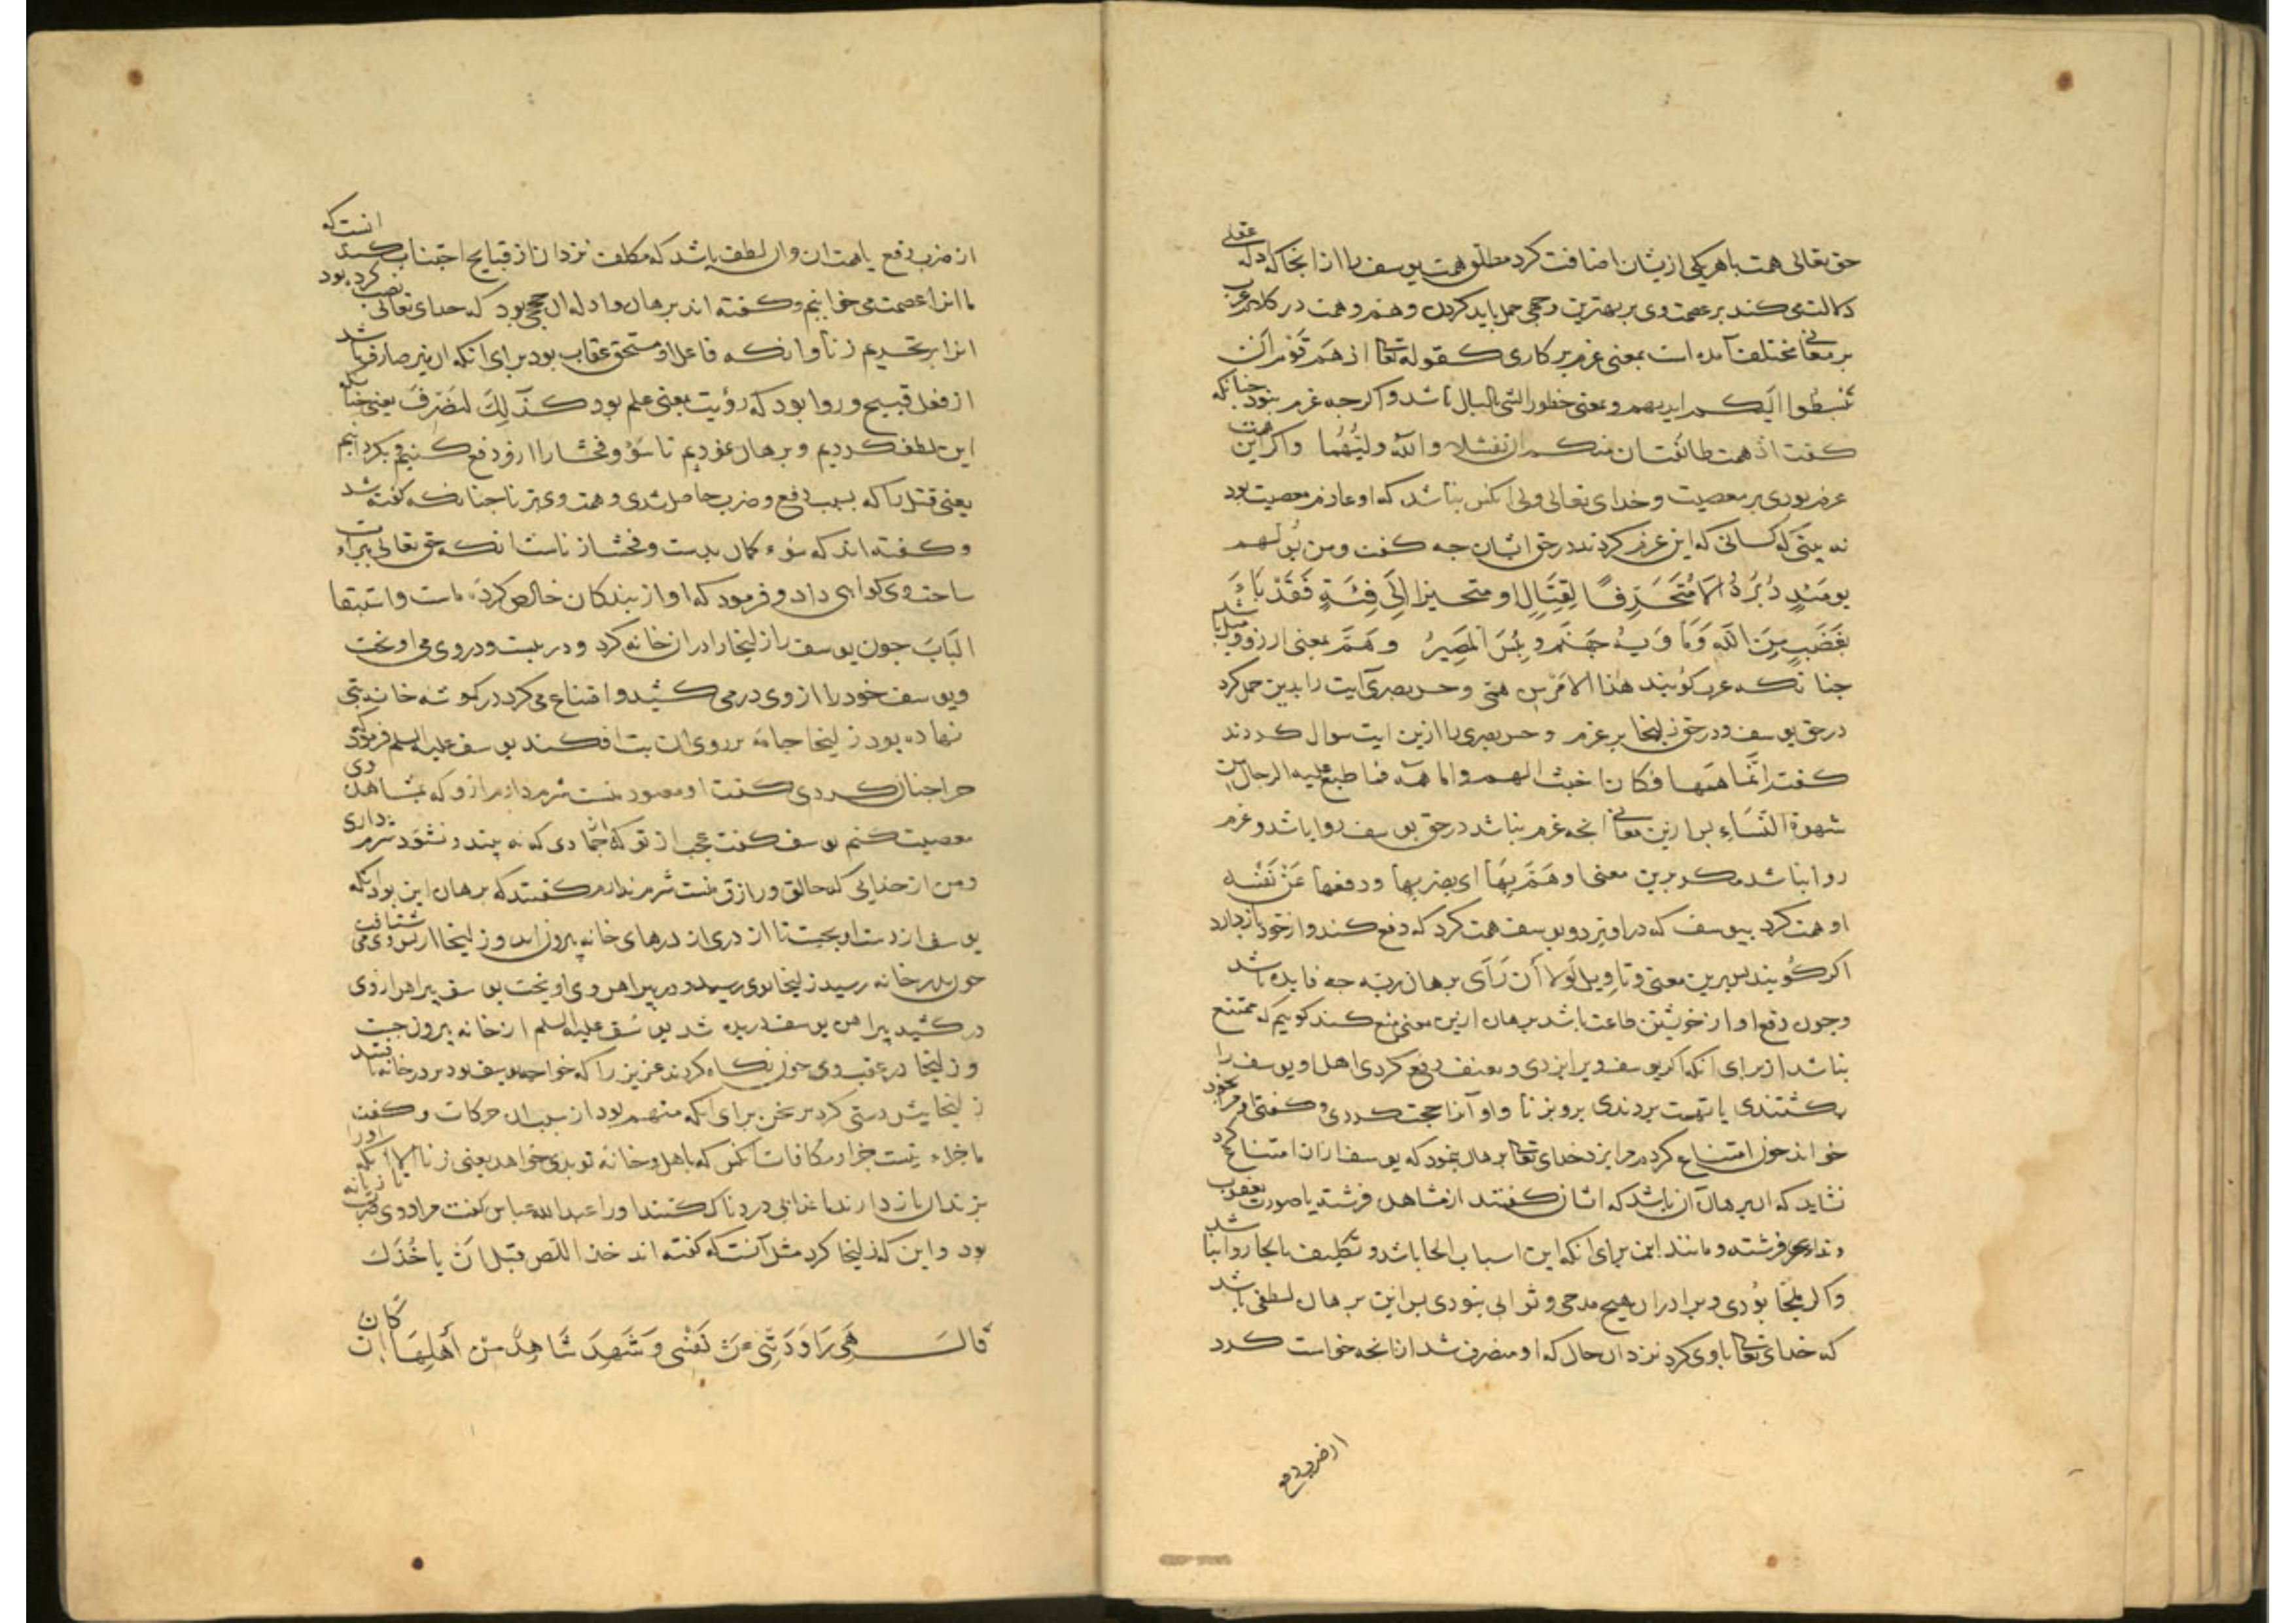 حق تعالی همت باهر یکی ازیشان اضافت کرد مطلق همت یوسف را از انجا که ادله عقلی
دلالت می کند بر عصمت وی بر بهترین وجهی حمل باید کردن و هم و همت در کلام عرب
بر معانی مختلف آمده است بمعنی عزم بر کاری کقوله تعالی اذ هم قوم ان
یبسطوا الیکم ایدیهم و بمعنی خطور الشی بالبال باشد و اکرچه عزم نبود جنانکه
کفت اذ همت طائفتان منکم ان تفشلا والله ولیهما و اکر این همت
عزم بودی بر معصیت و خدای تعالی ولی انکس نباشد که او عازم معصیت بود
نه بینی که کسانی که این عزم کردند در حق ایشان جه کفت و من یولهم
یومئذ دبره الا متحرفا لقتال او متحیزا الی فئة فقد باء
بغضب من الله وماویه جهنم و بئس المصیر و هم بمعنی ارزو و میل باشد
جنانکه عرب کویند هذا الامر من همی و حسن بصری آیت را بدین حمل کرد
در حق یوسف و در حق زلیخا بر عزم و حسن بصری را ازین ایت سوال کردند
کفت اما همها فکان اخبث الهم واما همه فما طبع علیه الرجال من
شهوة النساء بس ازین معانی انجه عزم نباشد در حق یوسف روا باشد و عزم
روا نباشد مکر برین معنی او هم بها ای بضربها و دفعها عن نفسه
او همت کرد بیوسف که در اویزد و یوسف همت کرد که دفع کند و از خود باز دارد
اکر کویند بس برین معنی و تاویل لولا أن رأی برهان ربه جه فایده باشد
وجون دفع او از خویشتن طاعت باشد برهان ازین معنی منع کند کوییم که ممتنع
نباشد از برای انکه اکر یوسف ویرا بزدی و بعنف دفع کردی اهل او یوسف را
بکشتندی یا تهمت بردندی برو بزنا و او آنرا حجت کردی و کفتی او مرا بخود
خواند جون امتناع کردم مرا بزد خدای تعالی برهان نمود که یوسف ازان امتناع کرد
نشاید که ان برهان آن باشد که ایشان کفتند از مشاهده فرشته یا صورت یعقوب
و ندای فرشته و مانند این برای انکه این اسباب الجا باشد و تکلیف با الجا روا نباشد
و اکر ملجا بودی ویرا دران هیچ مدحی و ثوابی نبودی بس این برهان لطفی باشد
که خدای تعالی با وی کرد نزد ان حال که او منصرف شد از انجه خواست کرد
از ضرب و دفع
از ضرب و دفع یا همت ان و ان لطف باشد که مکلف نزد ان از قبایح اجتناب کند انست که
ما انرا عصمت می خوانیم و کفته اند برهان و ادله ان حجج بود که خدای تعالی نصب کرده بود
انرا بر تحریم زنا و انکه فاعل او مستحق عقاب بود برای انکه ان نیز صارف باشد
از فعل قبیح و روا بود که رؤیت بمعنی علم بود کذلک لنصرف یعنی جنانکه
این لطف کردیم و برهان نمودیم تا سؤ و فحشا را ازو دفع کنیم و بکردانیم
یعنی قتل را که بسبب دفع و ضرب حاصل شدی و همت وی بزنا جنانکه کفته شد
و کفته اند که سوء کمان بدست و فحشا زناست انکه حق تعالی ببراءت
ساحت وی کواهی داد و فرمود که او از بندکان خالص کرده ماست و استبقا
الباب جون یوسف را زلیخا را دران خانه کرد و در ببست و در وی می اویخت
ویوسف خود را از وی در می کشید و امتناع می کرد در کوشه خانه بتی
نهاده بود زلیخا جامه بر روی ان بت افکند یوسف علیه السلم فرمود که
جرا جنان کردی کفت او معبود منست شرم دارم ازو که بمشاهده وی
معصیت کنم یوسف کفت عجب از تو که از جمادی که نه بیند و نشنود شرم داری
و من از خدایی که خالق و رازق منست شرم ندارم کفتند که برهان این بود انکه
یوسف از دست او بجست تا از دری از درهای خانه بیرون اید و زلیخا از پس وی می شتافت
جون بدر خانه رسید زلیخا بوی رسید و در پیراهن وی اویخت یوسف پیراهن از وی
در کشید پیراهن یوسف دریده شد یوسف علیه السلم از خانه بیرون جست
و زلیخا در عقب وی جون نکاه کردند عزیز را که خواجه یوسف بود بر در خانه یافتند
زلیخا پیش دستی کرد بر سخن برای انکه متهم بود از بس ان حرکات و کفت
ما جزاء نیست جزا و مکافات انکس که باهل و خانه تو بدی خواهد یعنی زنا الا انکه اورا
بزندان باز دارند یا عذابی دردناک کنند اورا عبدالله عباس کفت مراد وی ضرب تازیانه
بود و این که زلیخا کرد مثل آنست که کفته اند خذ اللص قبل ان یاخذک
قال هی راودتنی عن نفسی و شهد شاهد من أهلها ان کان